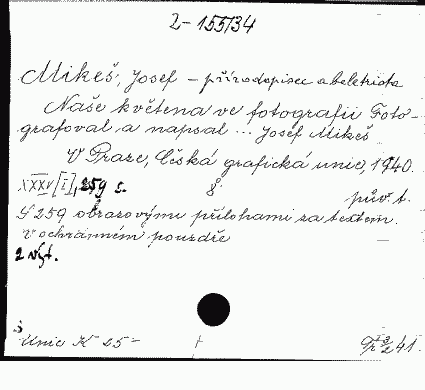 2-155134
Mikeš, Josef - přírodopisec a beletrista
Naše květena ve fotografii Foto-
grafoval a napsal ... Josef Mikeš
V Praze, Česká grafická unie, 1940.
XXXV [I], 259 s. 8°
pův. t.
S 259 obrazovými přílohami za textem.
V ochranném pouzdře
2 výt.
Unie K 25-
41.